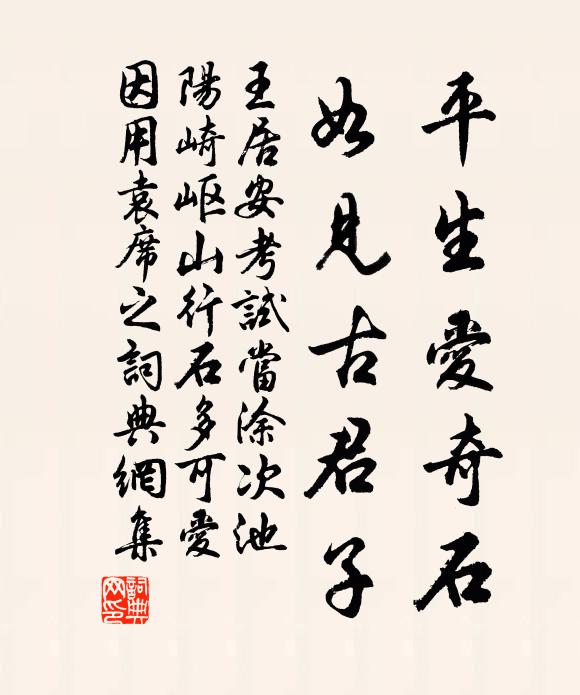 平生愛奇石
如見古君子
王居安考試當涂次池
陽崎岖山行石多可愛
因用袁席之詞典網集
詞典网印